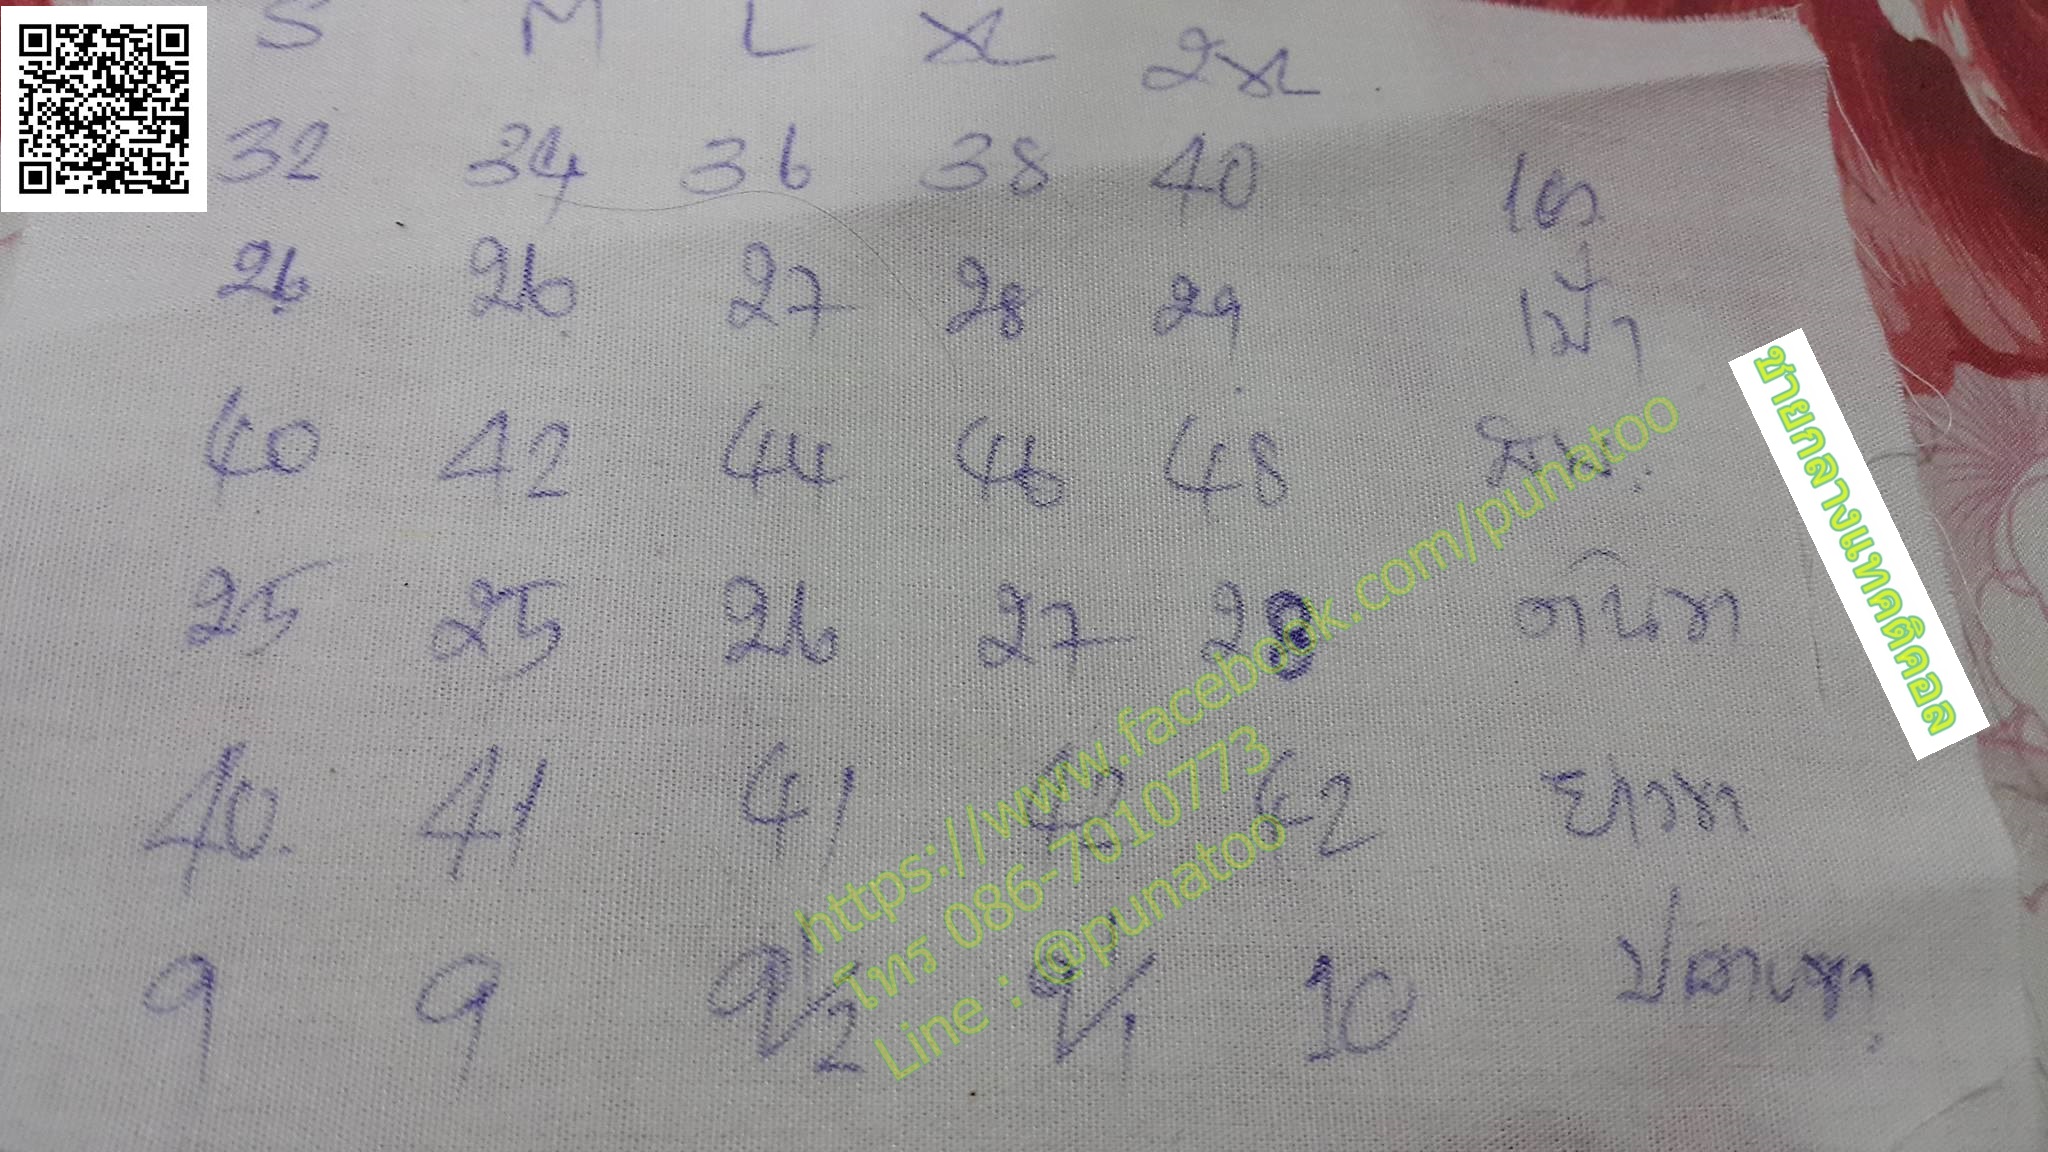 S M L XL 2XL
32 34 36 38 40 เอว
26 26 27 28 29 เป้า
40 42 44 46 48
25 25 26 27 28 ต้นขา
40 41 41 42 ยาวขา
9 9 9 1/2 10 ปลายขา
https://www.facebook.com/punatoo
โทร 086-7010773
Line : @punatoo
ชายกลางแทคติคอล